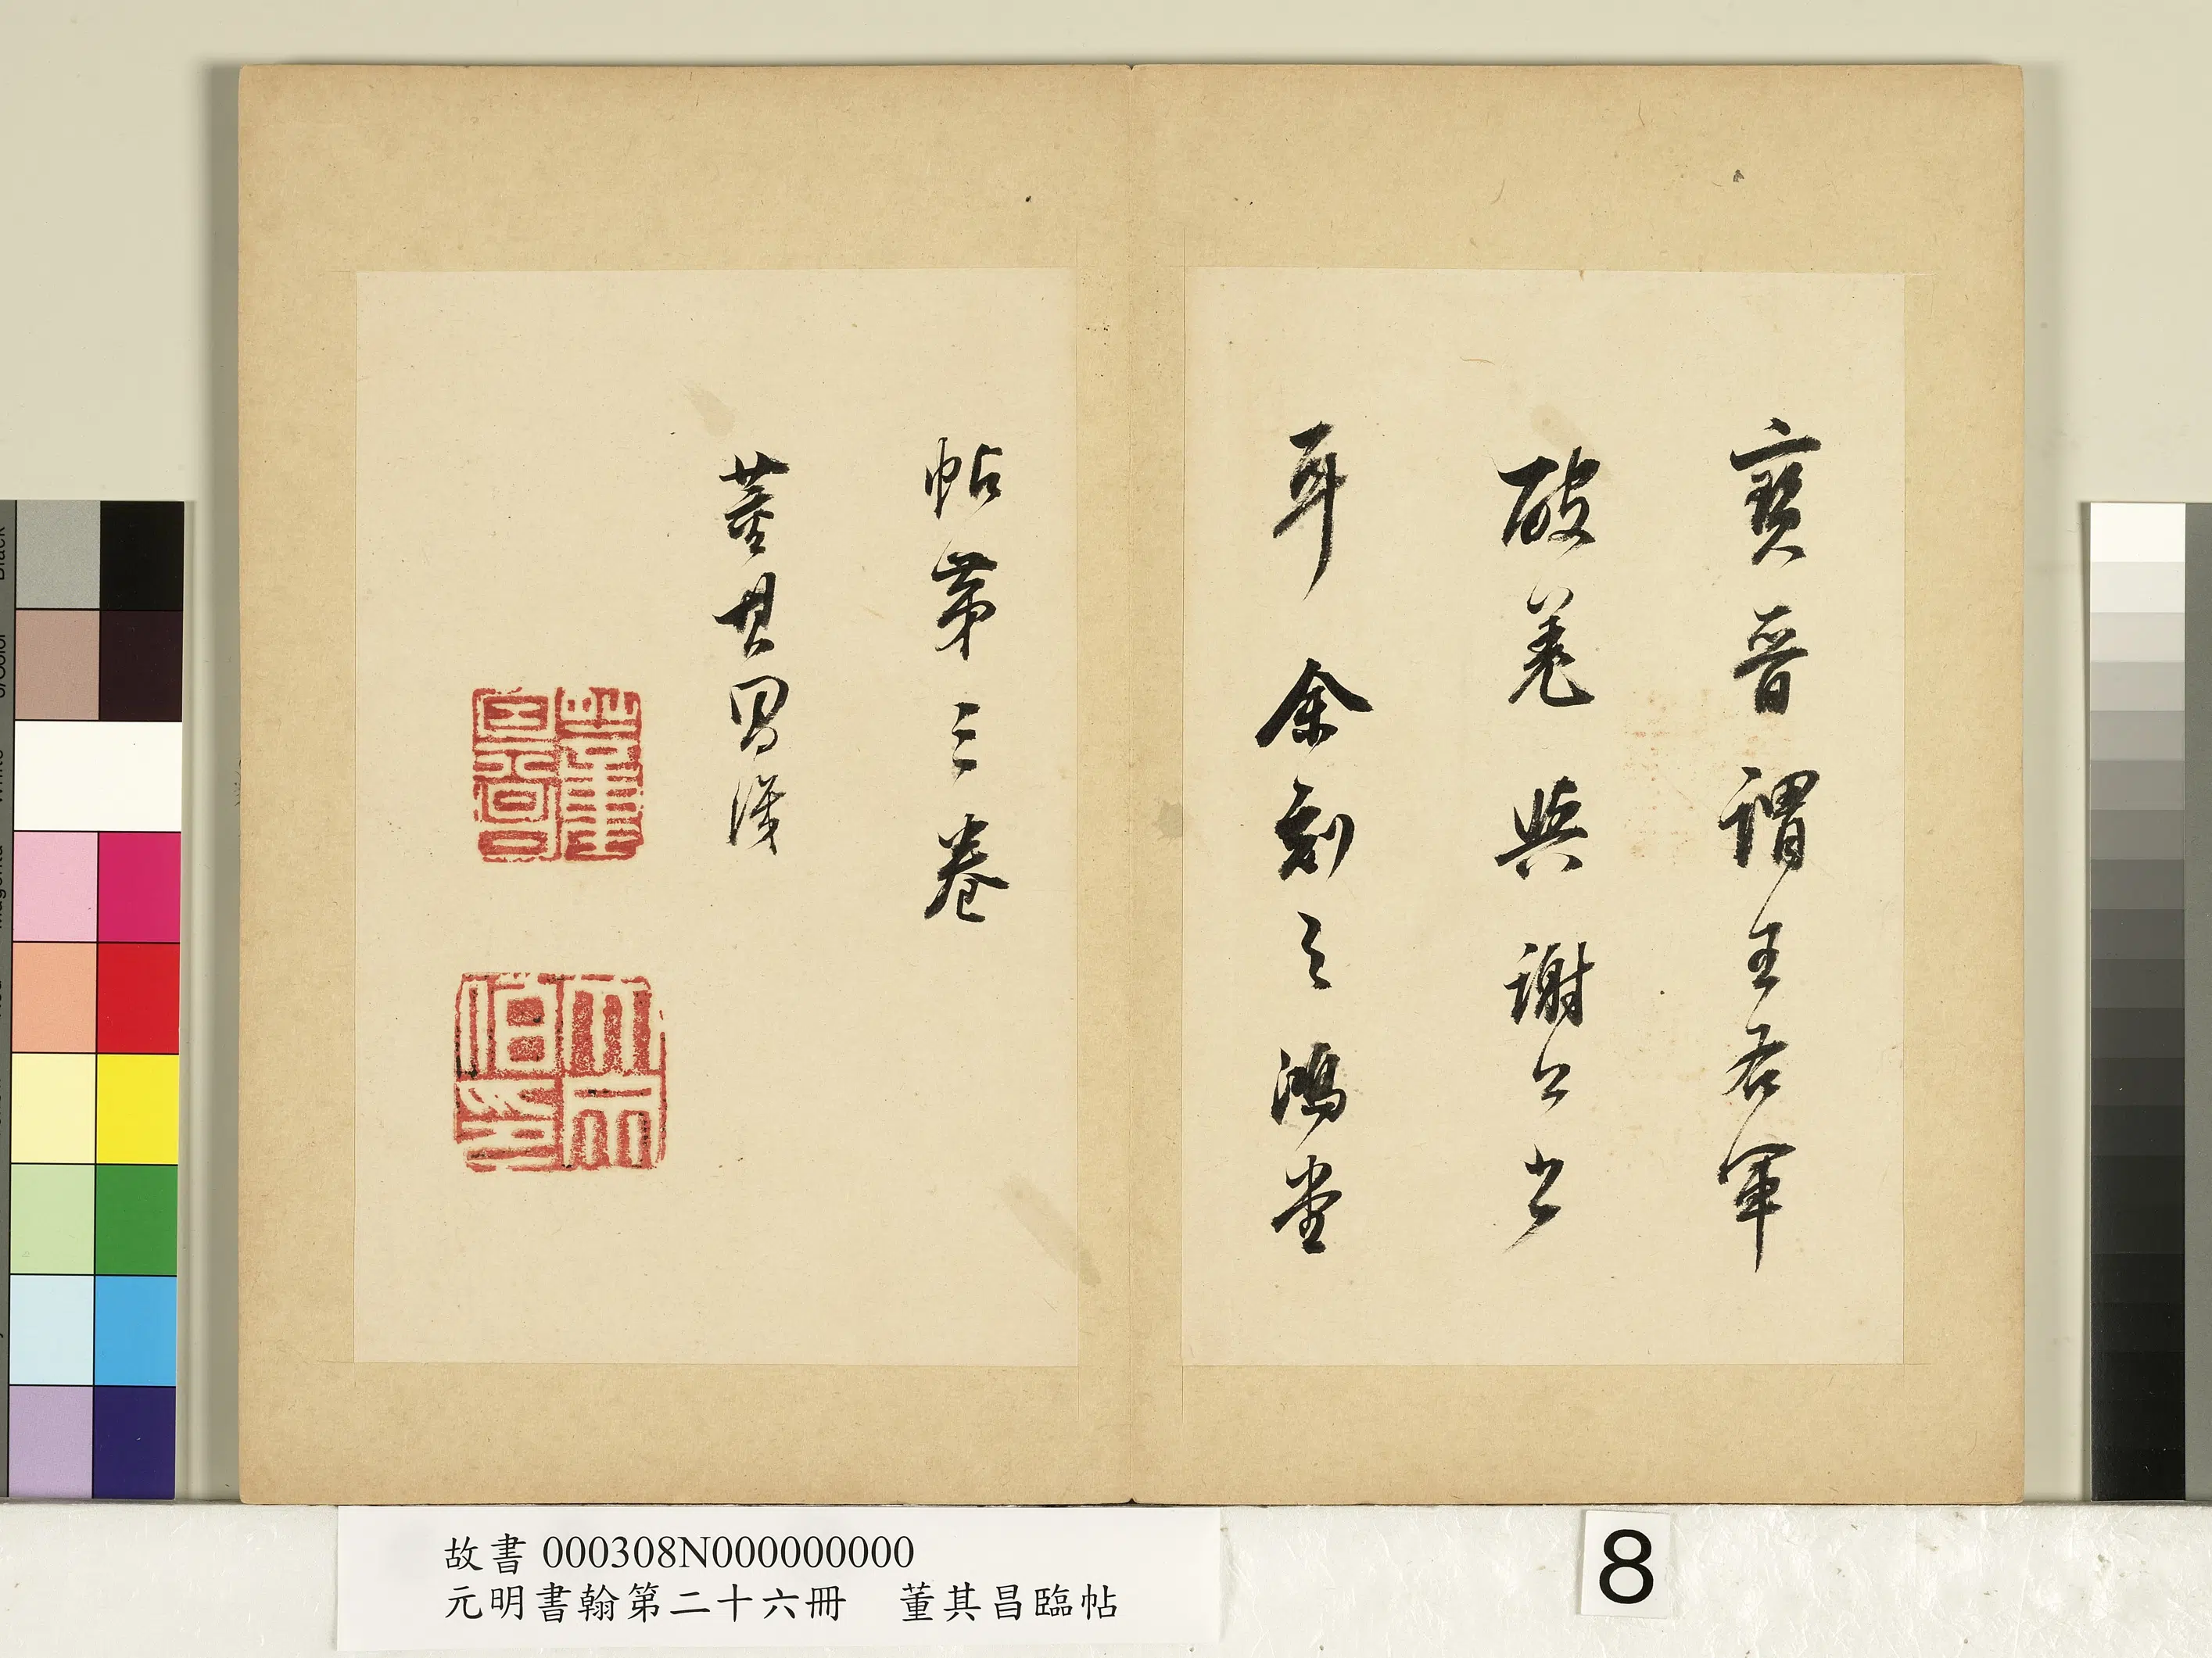 寶晉謂王右軍
破羌與謝公書
耳余刻之鴻堂
帖第三卷
董其昌識
董其昌
大宗伯印
故書 000308N000000000
元明書翰第二十六冊 董其昌臨帖
8